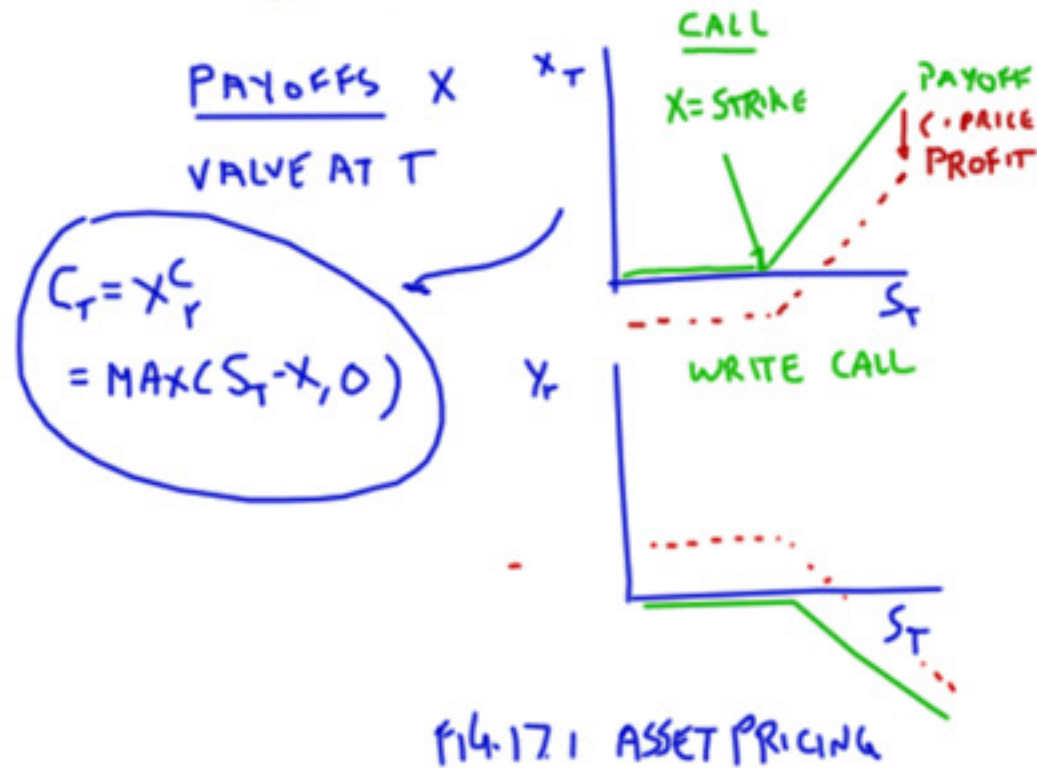 PAYOFFS X
VALUE AT T
C_T = X_T^C
= MAX(S_T - X, 0)
CALL
X_T
X = STRIKE
PAYOFF
C · PRICE
PROFIT
S_T
WRITE CALL
Y_T
S_T
FIG. 17.1 ASSET PRICING